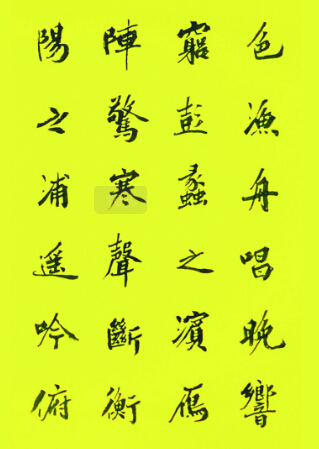 色漁舟唱晚響
窮彭蠡之濱鴈
陣驚寒聲斷衡
陽之浦遥吟俯